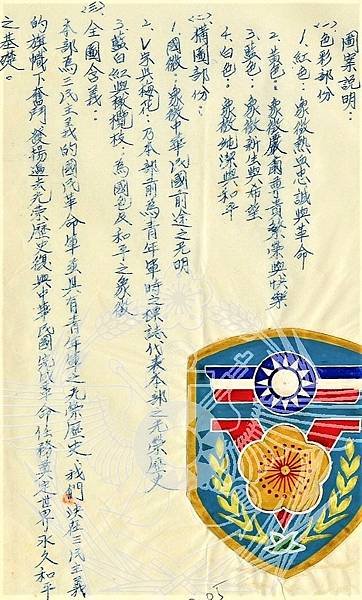 圖案說明：
㈠色彩部份
1、紅色：象徵熱血忠誠與革命
2、黃色。象徵嚴肅尊貴繁榮與快樂
3、藍色。象徵新生與希望
4、白色。象徵純潔與和平
㈡構圖部份：
1、國徽：象徵中華民國前途之光明
2、V字與梅花：乃本部前為青年軍時之標誌代表本部之光榮歷史
3、藍白紅與橄欖枝 為國色及和平之象徵
㈢全圖含義：
本部為三民主義的國民革命軍並具有青年軍之光榮歷史 我們決在三民主義
的旗幟下奮鬥發揚過去光榮歷史復興中華民國完成革命任務奠定世界永久和平
之基礎。